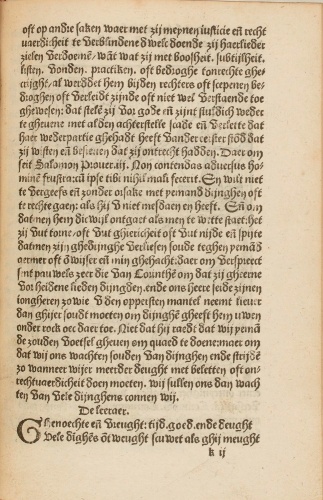 oft op andre saken waer met zij meynen iusticie eñ recht
uaerdicheit te verblindene d welc doende zij haerlieder
zielen verdoemē, wāt wat zij met boosheit, subtijlheit,
listen, vonden, practiken, oft bedroghe tonrechte ghe
crijghē, al worddet hem bijden rechters oft scepenen be
droghen oft verleidt zijnde oft niet wel verstaende toe
ghewesen: dat stelē zij vor gode eñ zijnt sculdich weder
te gheuene met al den achterstelle scade eñ verlette dat
haer wederpartie ghehadt heeft vander eerster stōd dat
zij wisten eñ beseffen dat zij onrecht hadden. Daer om
seit Salomon Prouer. iij. Non contendas aduersus ho
minē frustra: cū ipse tibi nihil mali fecerit. Eñ wilt niet
te vergeefs eñ zonder orsake met yemand dijnghen oft
te rechte gaen: als hij v niet mesdaen en heeft. Eñ om
datmen hem die wijl ontgaet als men te vvitte staet: het
zij vut torne, oft vut ghiericheit oft vut nijde eñ spijte
datmen zijn ghedijnghe verliesen soude teghen yemād
aermer oft ōwijser eñ min ghehacht: daer om verspreect
sint pauwels zeer die van Corinthē om dat zij gheerne
vor heidene lieden dijngden. ende ons heere seide zijnen
iongheren zo wie v den oppersten mantel neemt lieuer
dan ghijer soudt moeten om dijnghē gheeft hem uwen
onder rock oec daer toe. Niet dat hij raedt dat wij yemā
de zouden voetsel gheuen om quaed te doene: maer om
dat wij ons wachten souden van dijnghen ende strijdē
zo wanneer wijer meerder deught met beletten oft on-
rechtuaerdicheit doen moeten. wij sullen ons dan wach
ten van vele dijnghens connen wij.
De leeraer.
Ghenoechte eñ vreught: tijd, goed, ende deught
vele dīghēs ōtweught scuwet als ghij meught
k ij